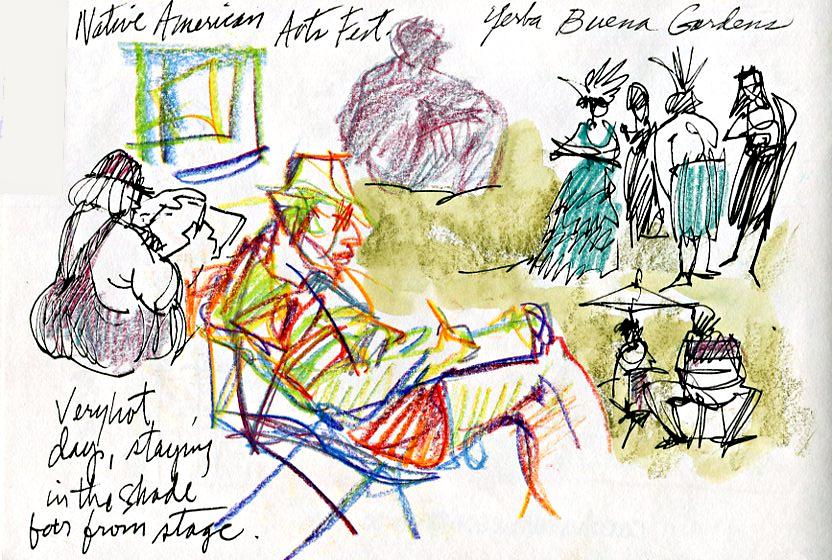 Native American Arts Fest.
Yerba Buena Gardens
Very hot
day, staying
in the shade
far from stage.